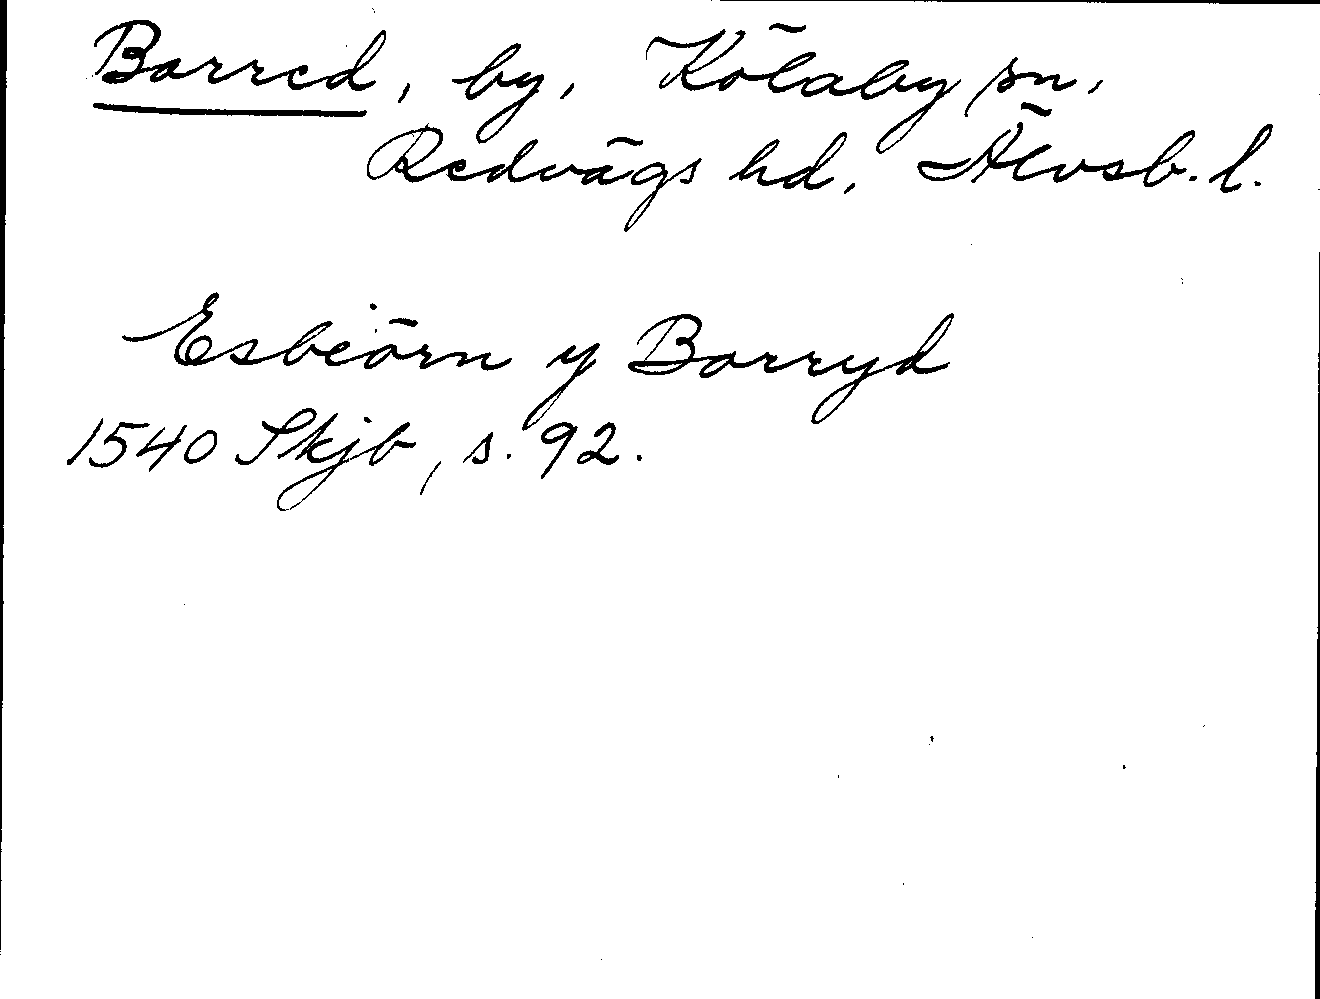 Borred, by, Kölaby sn,
Redvägs hd, Älvsb. l.
Esbeörn y Borryd
1540 Skjb, s. 92.